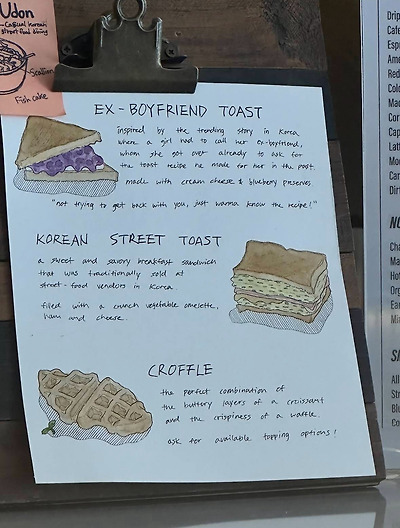 Udon
- Casual Korean
street food dining
Scallion
Fish cake
EX-BOYFRIEND TOAST
inspired by the trending story in Korea
where a girl had to call her ex-boyfriend,
whom she got over already to ask for
the toast recipe he made for her in the past.
made with cream cheese & blueberry preserves
"not trying to get back with you, just wanna know the recipe!"
KOREAN STREET TOAST
a sweet and savory breakfast sandwich
that was traditionally sold at
street-food vendors in Korea.
filled with a crunch vegetable omelette,
ham and cheese.
CROFFLE
the perfect combination of
the buttery layers of a croissant
and the crispiness of a waffle.
ask for available topping options!